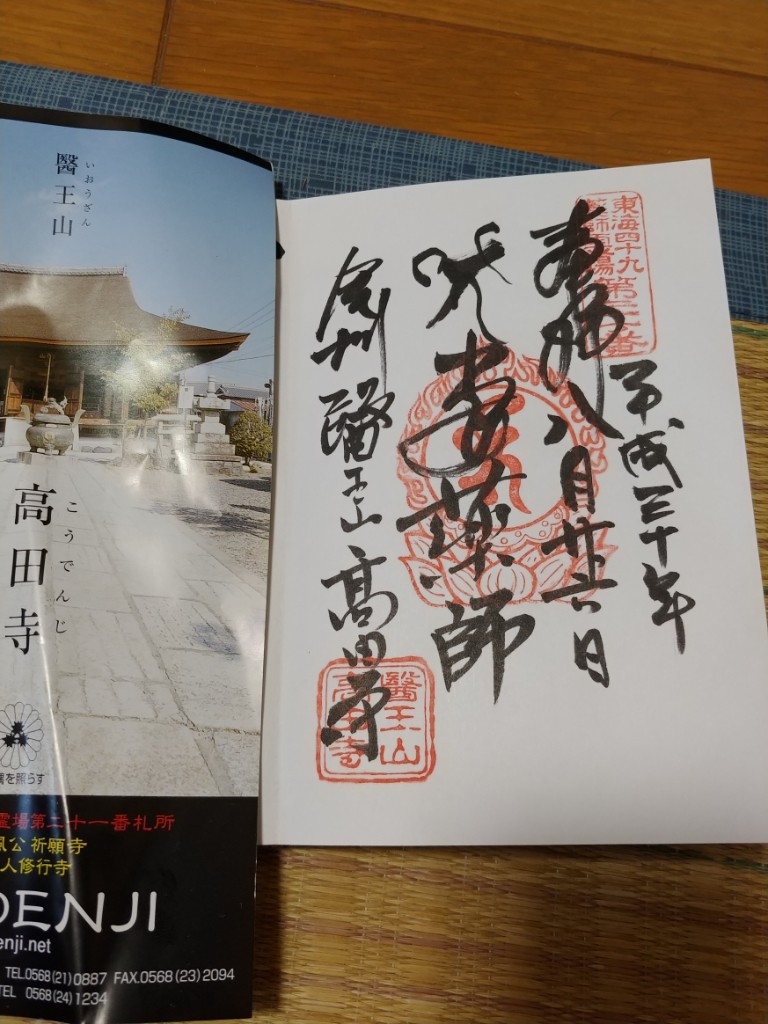 醫王山
いおうざん
高田寺
こうでんじ
を照らす
霊場第二十一番札所
公祈願寺
人修行寺
DENJI
enji.net
TEL.0568(21)0887 FAX.0568(23)2094
TEL 0568(24)1234
東海四十九
薬師霊場
平成三十年
奉拝 八月廿六日
薬師
尾州 醫王山 高田寺
醫王山
高田寺